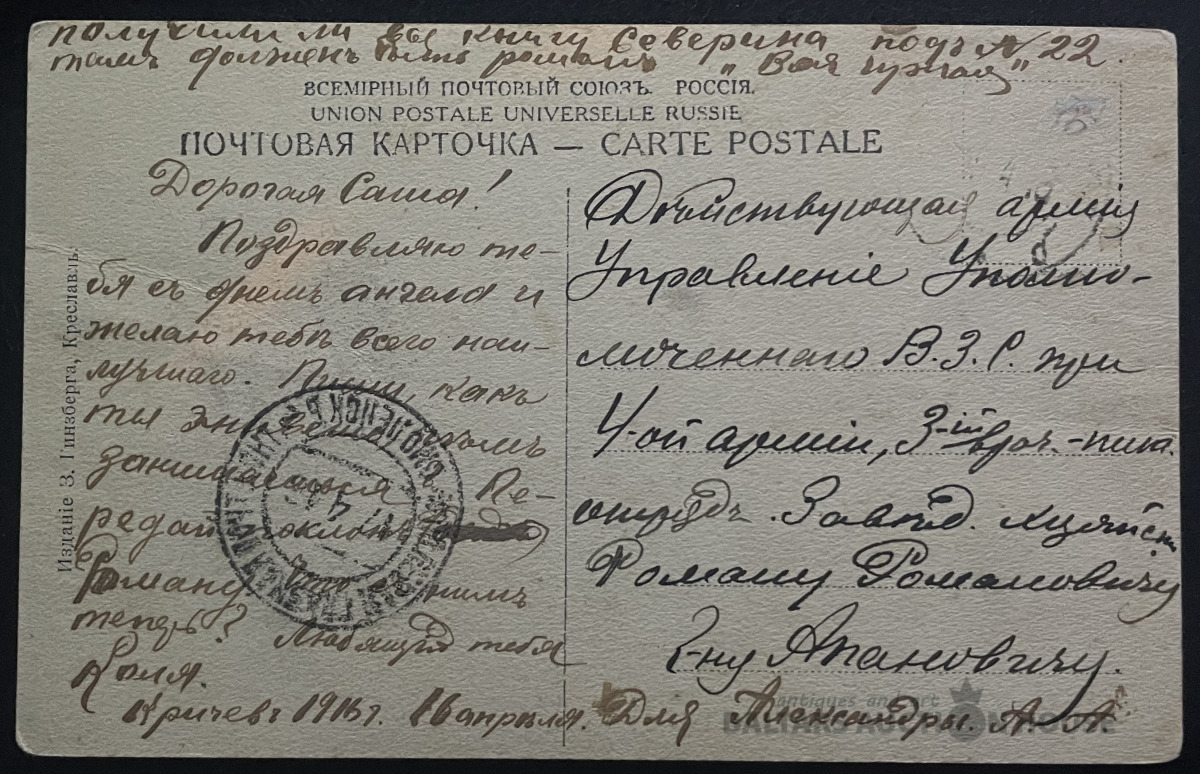 получили ли вы книгу Северина подъ № 22.
тамъ долженъ быть романъ „Воя чужая"
ВСЕМІРНЫЙ ПОЧТОВЫЙ СОЮЗЪ. РОССІЯ.
UNION POSTALE UNIVERSELLE RUSSIE
ПОЧТОВАЯ КАРТОЧКА — CARTE POSTALE
Дорогая Саша!
Поздравляю те-
бя съ днемъ ангела и
желаю тебѣ всего наи-
лучшаго. Пиши, какъ
ты чѣмъ
занимаешься. Пе-
редай поклонъ
Роману нимъ
теперь? Любящій тебя
Коля.
Кричевъ 1916 г. 16 апрѣля.
Изданіе З. Гинзберга, Креславль.
Дѣйствующая армія
Управленіе Уполно-
моченнаго В.З.С. при
4-ой арміи, 3-ій врач.-пита.
отрядъ. Завѣд. хозяйст.
Роману Романовичу
Г-ну Апановичу.
Для Александры. А. А.
antiques and art
BALTARS AUCTION HOUSE